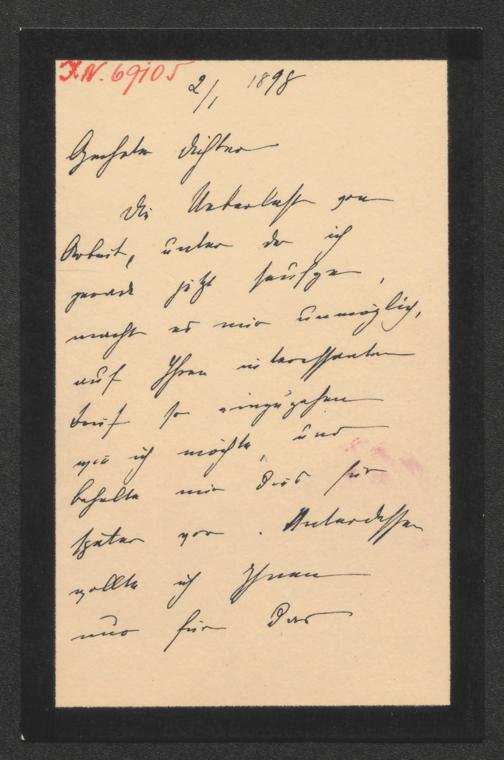 I.N. 69105
2/1 1898
Geehrter Dichter
Die Ueberlast von
Arbeit, unter der ich
gerade jetzt seufze,
macht es mir unmöglich,
auf Ihren interessanten
Brief so einzugehen
wie ich möchte, und
behalte mir dies für
später vor. Unterdessen
wollte ich Ihnen
nur für das